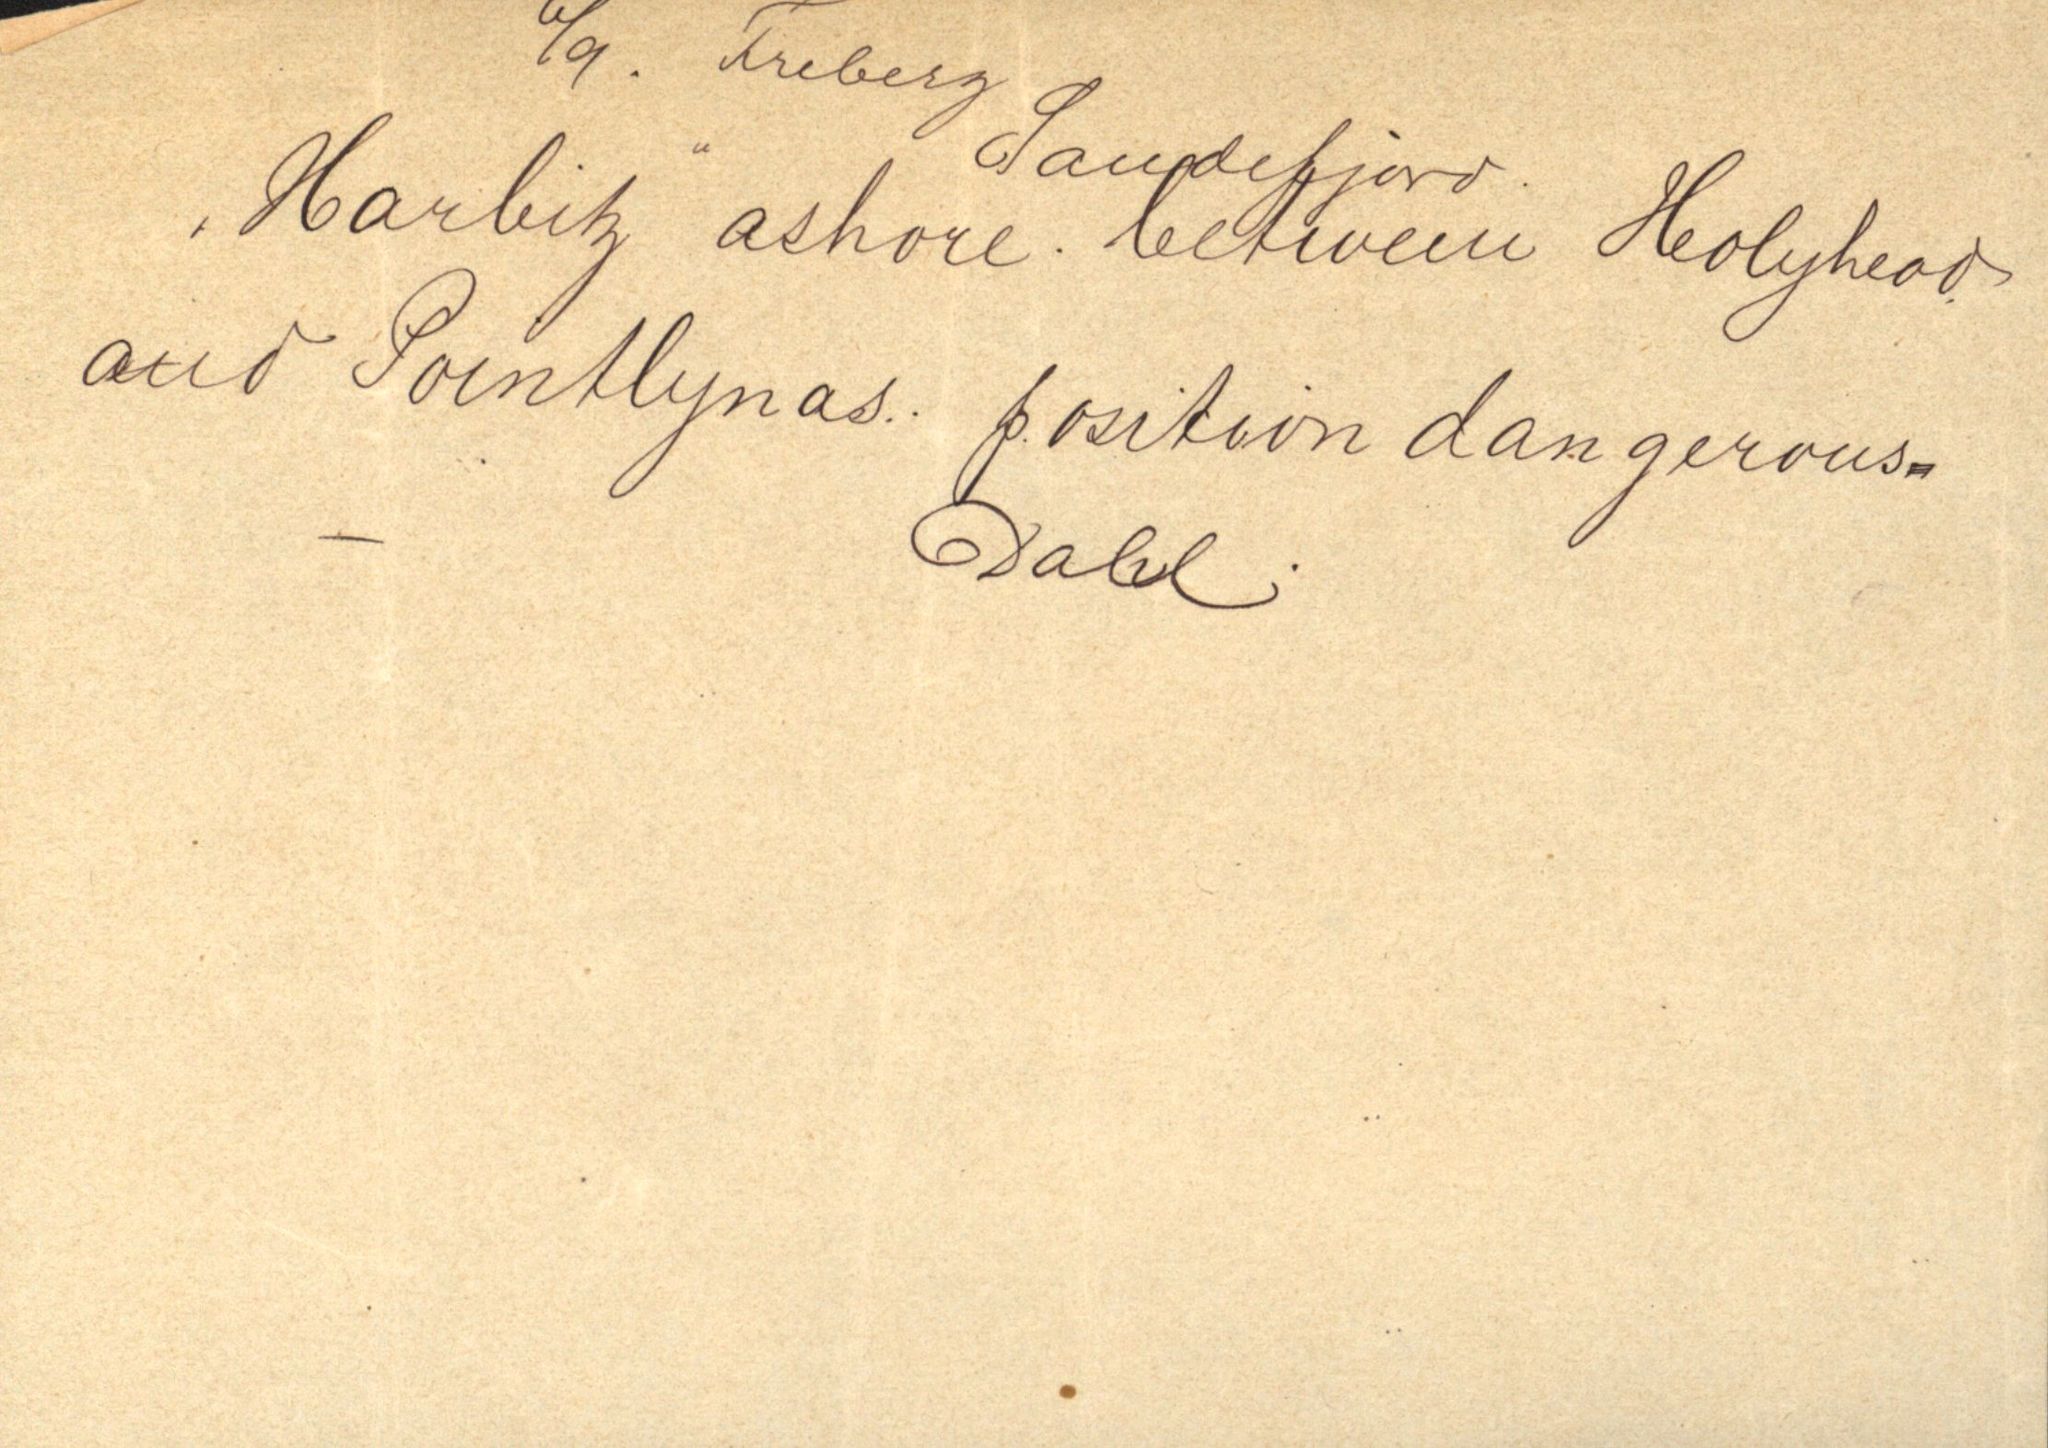 /9. Freberg
Sandefjord.
"Harbitz" ashore. between Holyhead
and Pointlynas. position dangerous=
— Dahl.